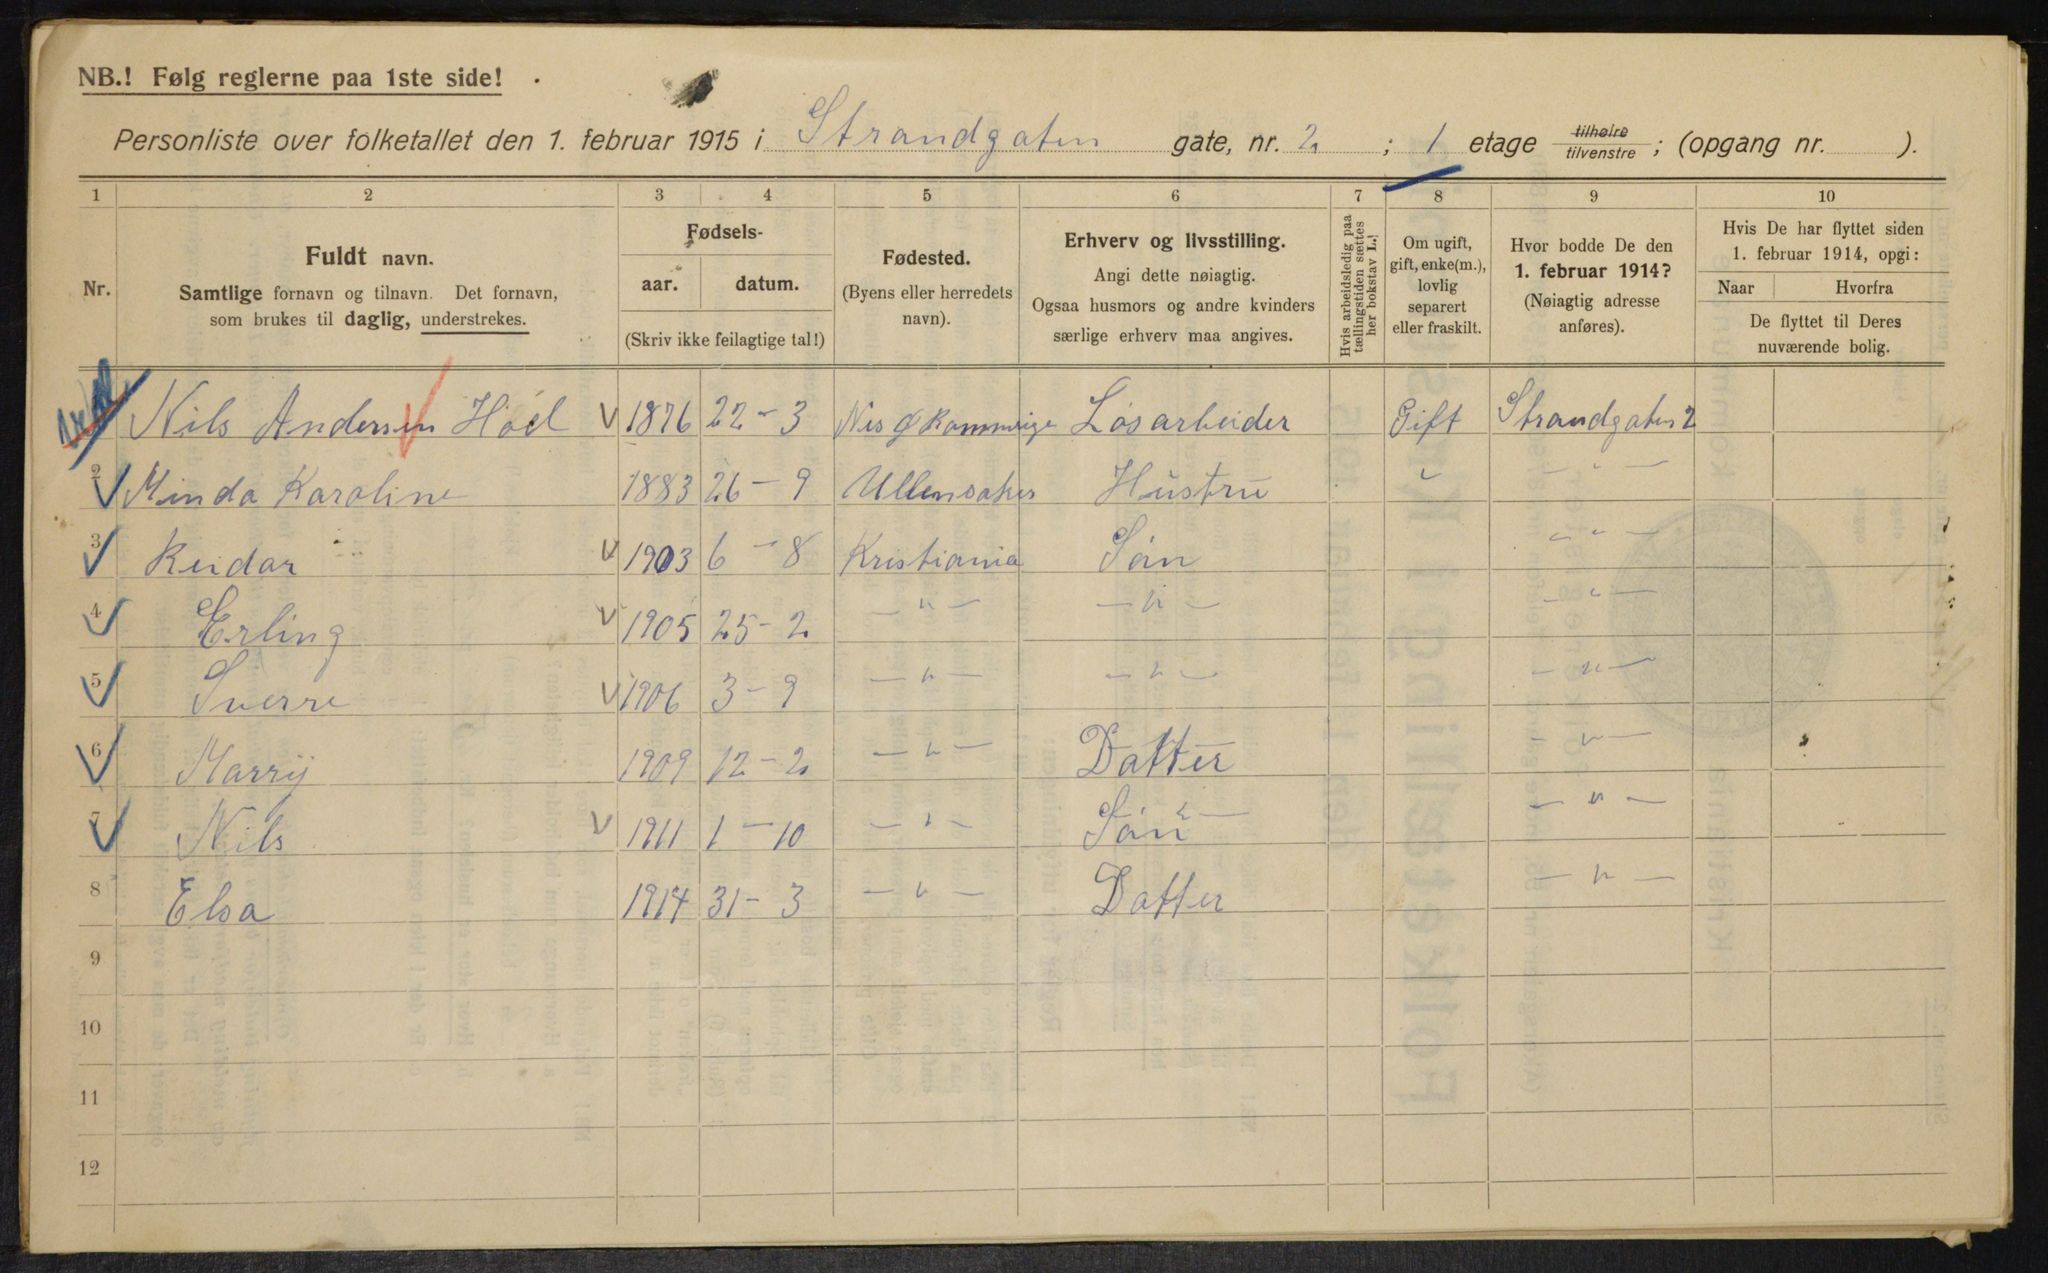 NB.! Følg reglerne paa 1ste side!
Personliste over folketallet den 1. februar 1915 i Strandgaten gate, nr. 2 ; 1 etage tilhøire tilvenstre ; (opgang nr. ).
1 2 3 4 5 6 7 8 9 10
Nr.
Fuldt navn.
Samtlige fornavn og tilnavn. Det fornavn,
som brukes til daglig, understrekes.
Fødsels-
aar. datum.
(Skriv ikke feilagtige tal!)
Fødested.
(Byens eller herredets
navn).
Erhverv og livsstilling.
Angi dette nøiagtig.
Ogsaa husmors og andre kvinders
særlige erhverv maa angives.
Hvis arbeidsledig paa
tællingstiden sættes
her bokstav L.!
Om ugift,
gift, enke(m.),
lovlig
separert
eller fraskilt.
Hvor bodde De den
1. februar 1914?
(Nøiagtig adresse
anføres).
Hvis De har flyttet siden
1. februar 1914, opgi:
Naar Hvorfra
De flyttet til Deres
nuværende bolig.
Nils Andersen Höel V 1876 22 - 3 Nes Løsarbeider Gift Strandgaten 2
2 Minda Karoline 1883 26 - 9 Ullensaker Hustru " - " -
3 Reidar V 1903 6 - 8 Kristiania Sön - " -
4 Erling V 1905 25 - 2 - " - - " - - " -
5 Sverre V 1906 3 - 9 - " - - " - - " -
6 Marrij 1909 12 - 2 - " - Datter - " -
7 Nils V 1911 1 - 10 - " - Sön - " -
8 Elsa 1914 31 - 3 - " - Datter - " -
9
10
11
12